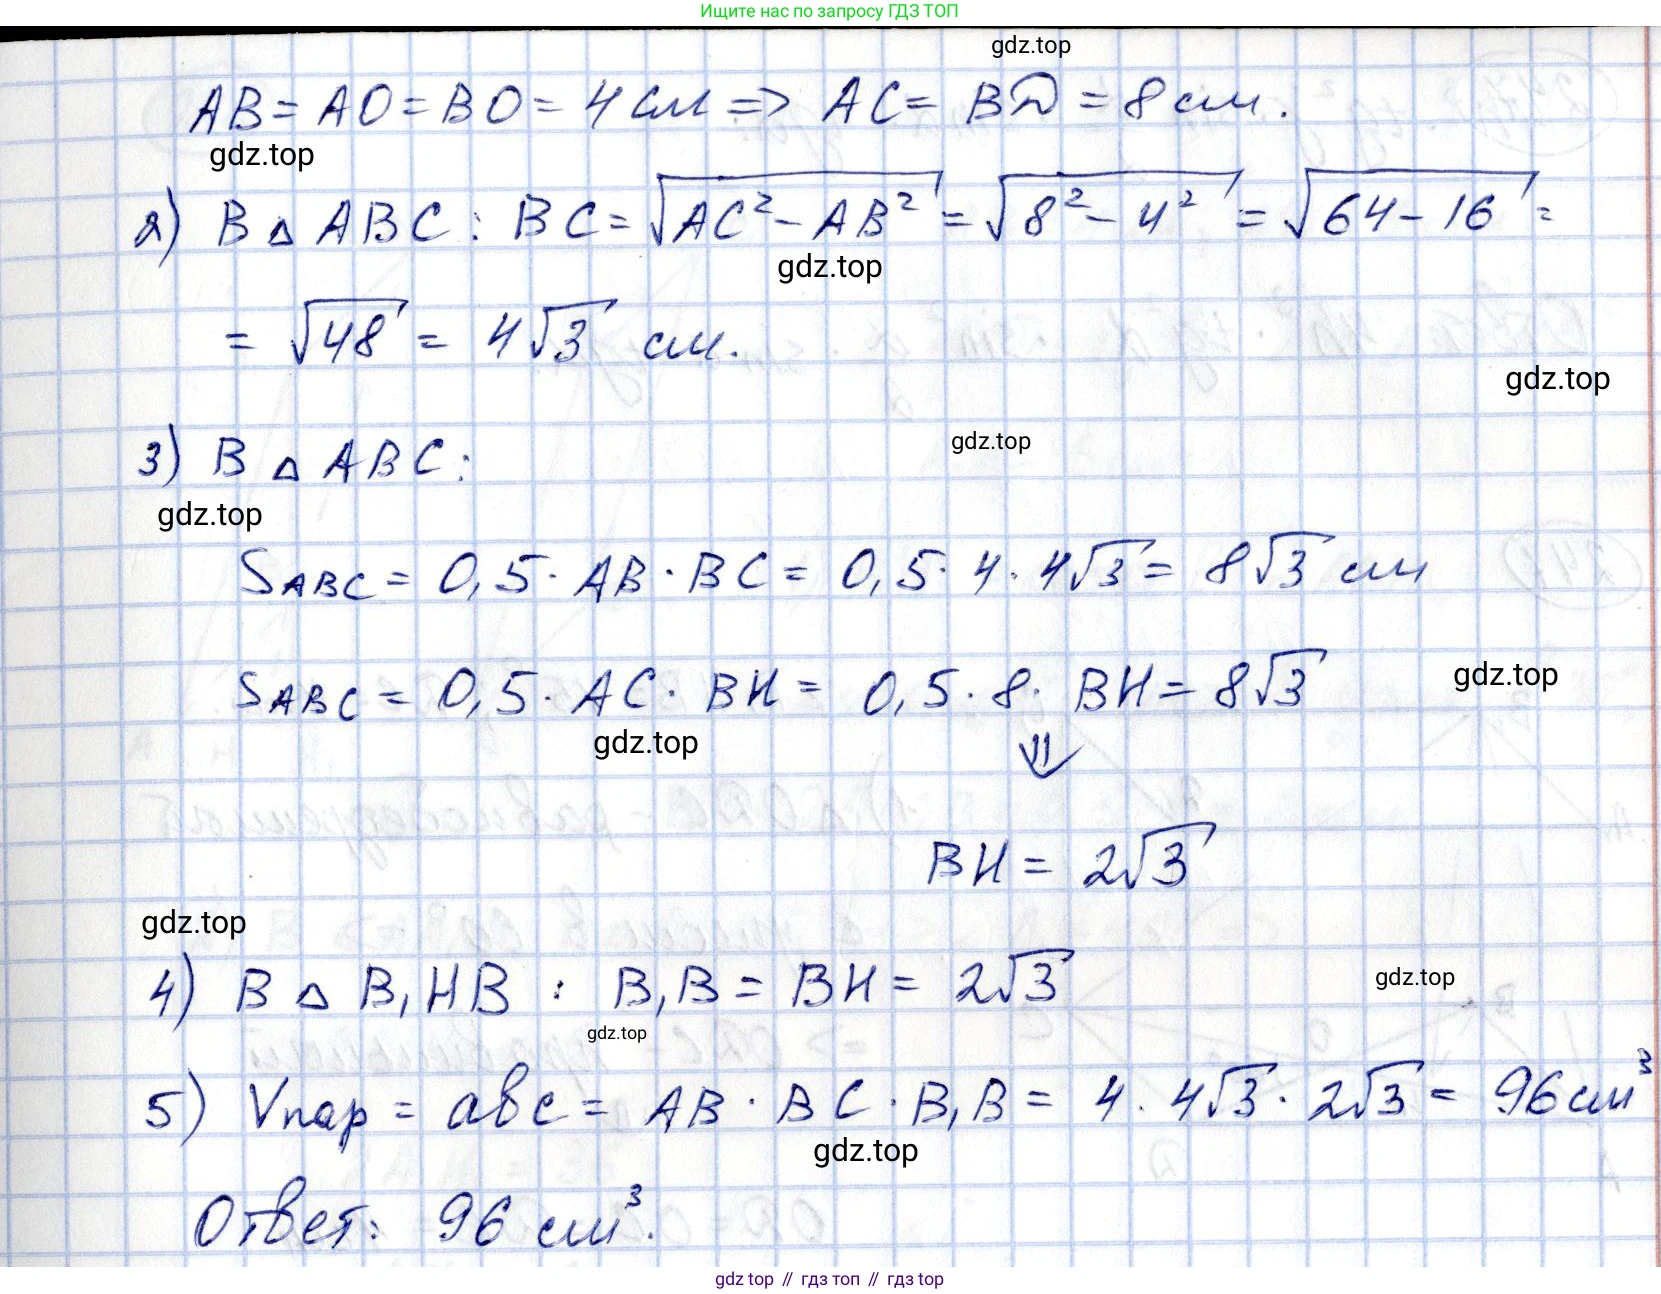 Ищите нас по запросу ГДЗ ТОП
gdz.top
AB = AO = BO = 4 см => AC = BD = 8 см.
gdz.top
2) В △ ABC : BC = √(AC² - AB²) = √(8² - 4²) = √(64 - 16) =
gdz.top
= √48 = 4√3 см.
gdz.top
3) В △ ABC :
gdz.top
gdz.top
S ABC = 0,5 · AB · BC = 0,5 · 4 · 4√3 = 8√3 см
S ABC = 0,5 · AC · BH = 0,5 · 8 · BH = 8√3
gdz.top
gdz.top
⇓
BH = 2√3
gdz.top
4) В △ B₁HB : B₁B = BH = 2√3
gdz.top
gdz.top
5) Vпар = abc = AB · BC · B₁B = 4 · 4√3 · 2√3 = 96 см³
gdz.top
Ответ: 96 см³.
gdz top // гдз топ // gdz top